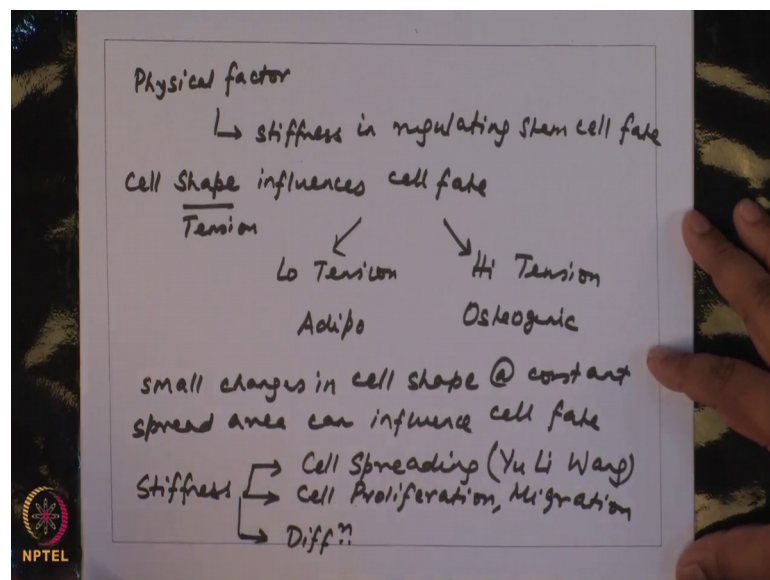 Physical factor
↳ stiffness in regulating stem cell fate
Cell Shape influences cell fate
Tension
Lo Tension Hi Tension
Adipo Osteogenic
small changes in cell shape @ constant
spread area can influence cell fate
Stiffness → Cell Spreading (Yu Li Wang)
→ Cell Proliferation, Migration
↳ Diffn
NPTEL